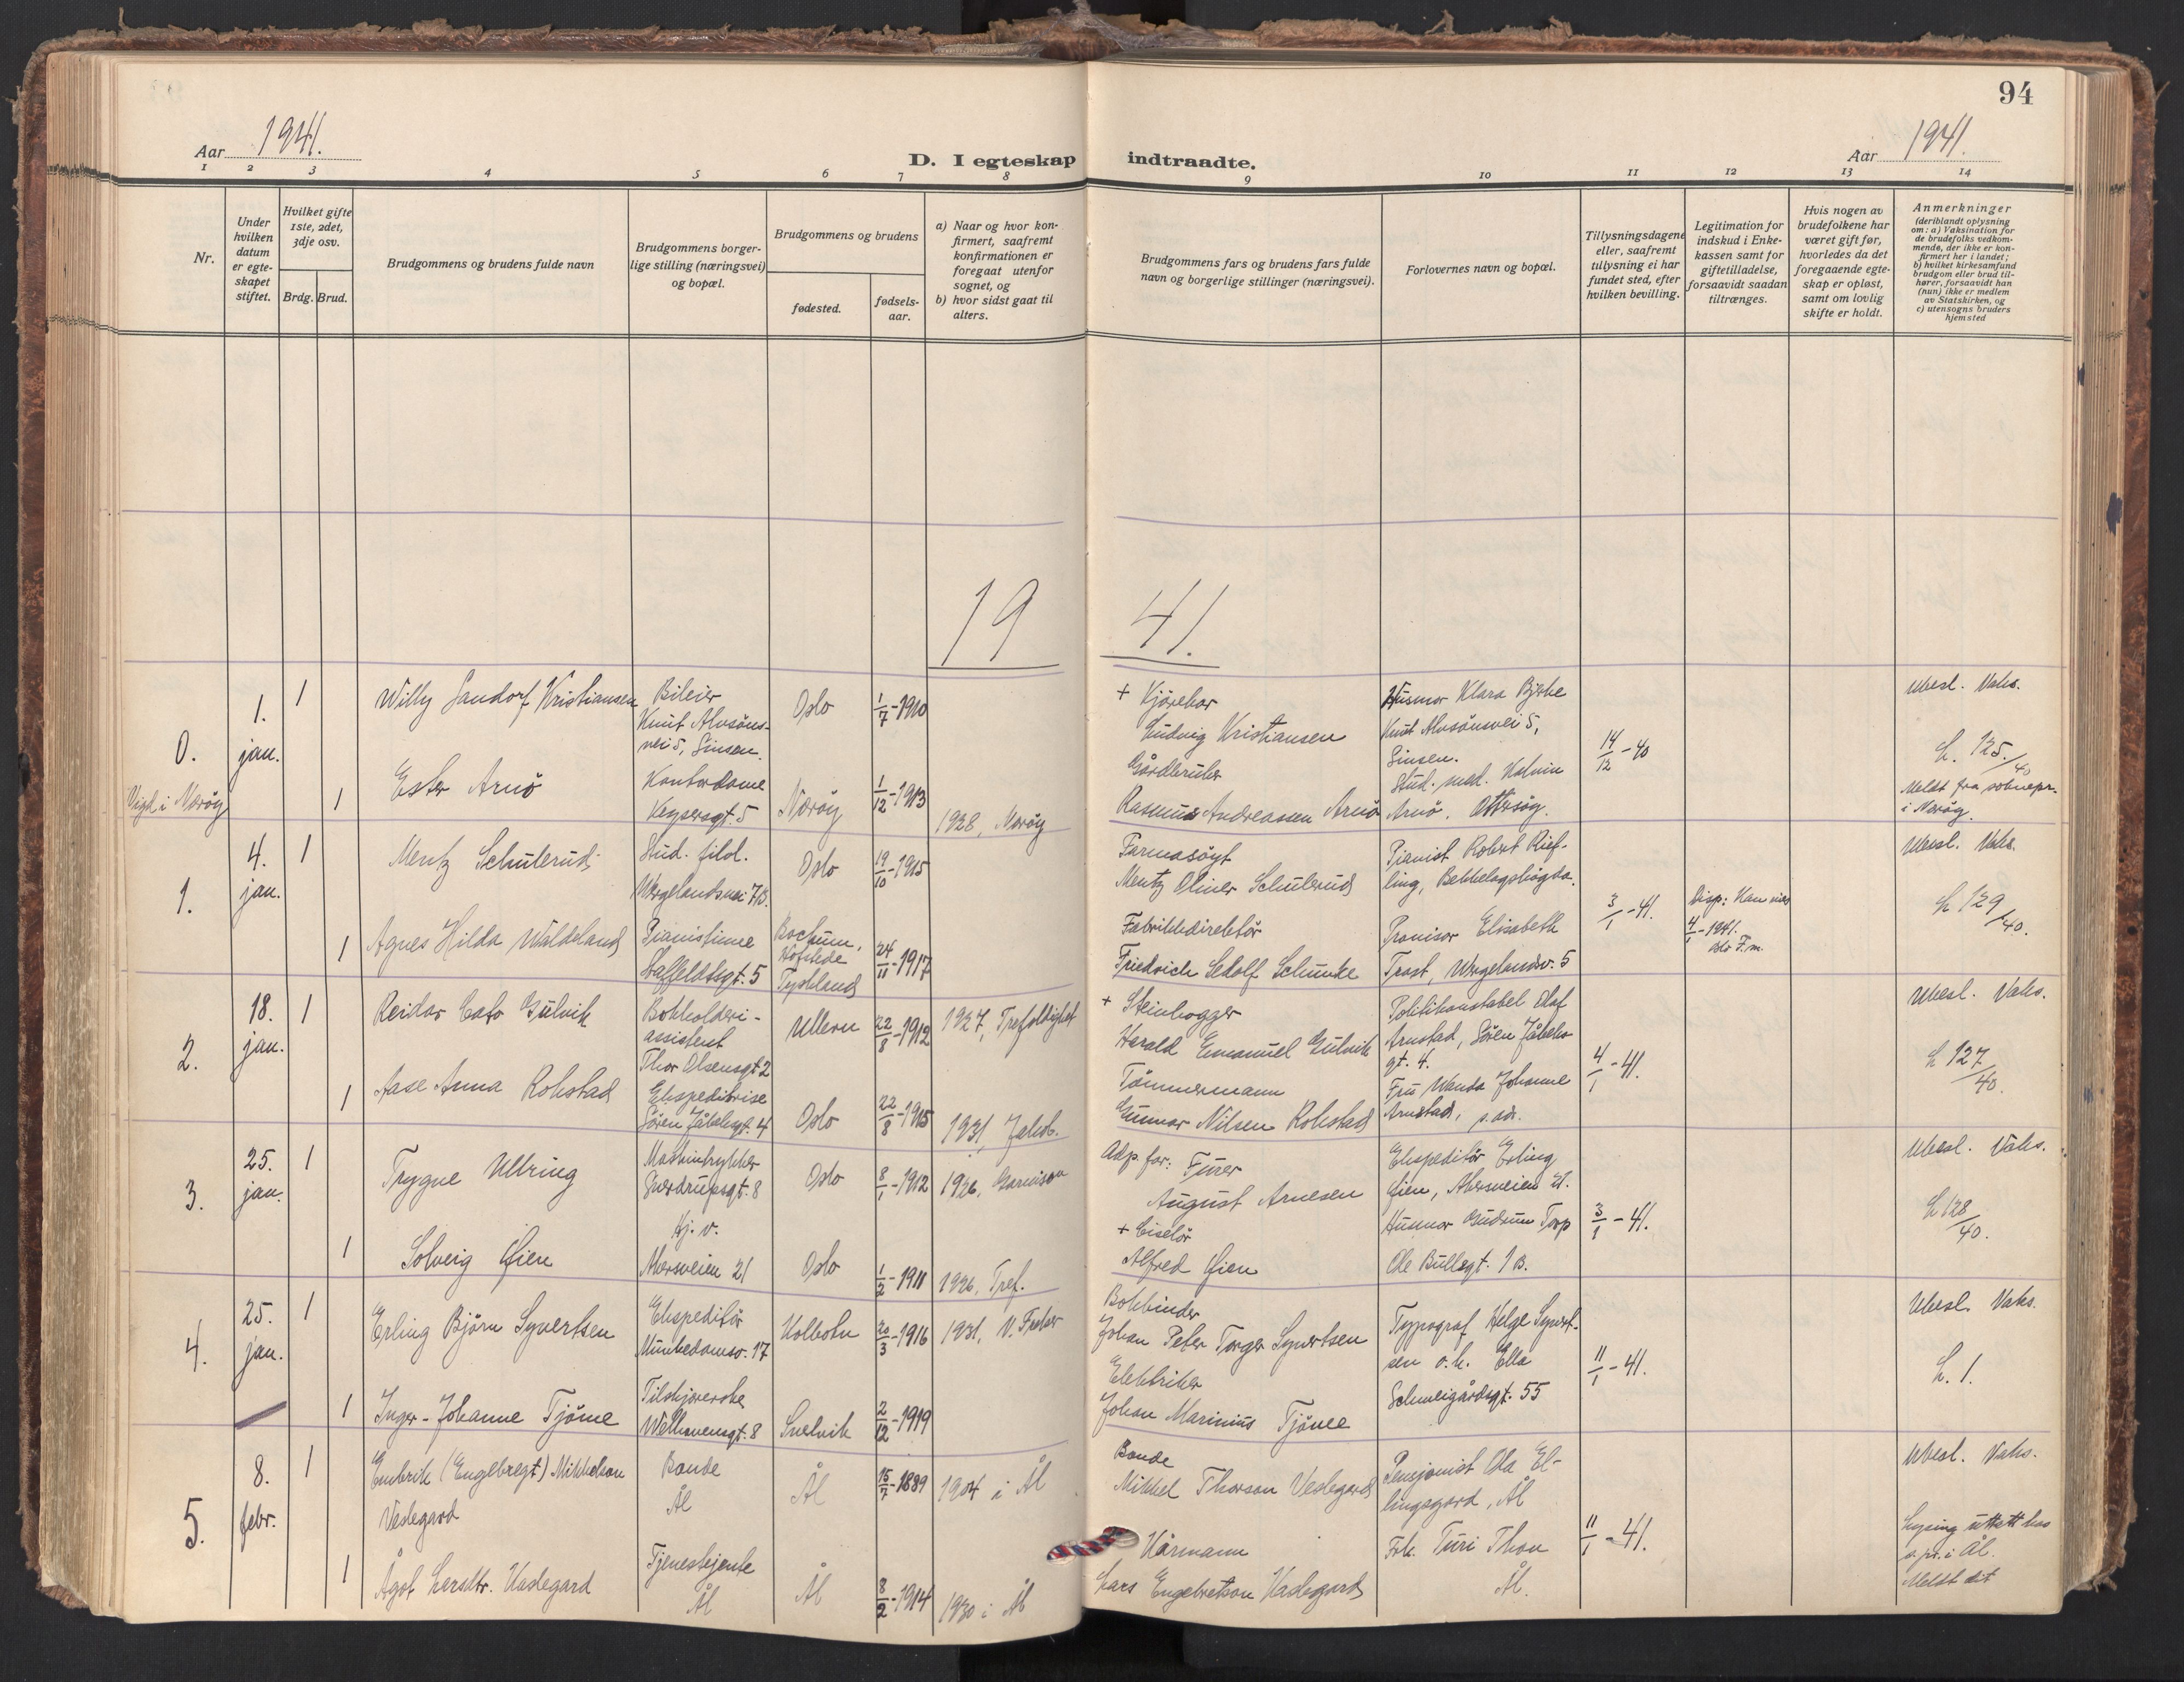 94
Aar 1941.
D. I egteskap indtraadte.
Aar 1941.
1 2 3 4 5 6 7 8 9 10 11 12 13 14
Nr.
Under hvilken datum er egteskapet stiftet.
Hvilket gifte 1ste, 2det, 3dje osv.
Brdg. Brud.
Brudgommens og brudens fulde navn
Brudgommens borgerlige stilling (næringsvei) og bopæl.
Brudgommens og brudens
fødested.
fødselsaar.
a) Naar og hvor konfirmert, saafremt konfirmationen er foregaat utenfor sognet, og
b) hvor sidst gaat til alters.
Brudgommens fars og brudens fars fulde navn og borgerlige stillinger (næringsvei).
Forlovernes navn og bopæl.
Tillysningsdagene eller, saafremt tillysning ei har fundet sted, efter hvilken bevilling.
Legitimation for indskud i Enkekassen samt for giftetilladelse, forsaavidt saadan tiltrænges.
Hvis nogen av brudefolkene har været gift før, hvorledes da det foregaaende egteskap er opløst, samt om lovlig skifte er holdt.
Anmerkninger
(deriblandt oplysning om: a) Vaksination for de brudefolks vedkommende, der ikke er konfirmert her i landet; b) hvilket kirkesamfund brudgom eller brud tilhører, forsaavidt han (hun) ikke er medlem av Statskirken, og c) utensogns bruders hjemsted
19 41.
0.
Vigd i Nærøy
1. jan.
1
Willy Sandorf Kristiansen
Bileier
Knut Alvsöns-
vei 5, Sinsen.
Oslo
1/7-1910
+ Kjörekar
Ludvig Kristiansen
Husmor Klara Bjerke
Knut Alvsönsvei 5,
Sinsen.
14/12-40
Ubesl. Vaks.
L. 125/40
1
Ester Arnö
Kontordame
Keysersgt. 5
Nærøy
1/12-1913
1928, Nærøy
Gårdbruker
Rasmus Andreassen Arnö
Stud. med.
Arnö. Ottersøy.
Meldt fra soknepr.
i Nærøy.
1.
4. jan.
1
Mentz Schulerud
Stud. filol.
Wergelandsvei 7B.
Oslo
19/10-1915
Farmasöyt
Mentz Oliver Schulerud
Pianist Robert Rief-
ling, Bekkelagshögda.
3/1-41.
4/1-1941.
Ubesl. Vaks.
L 129/40.
1
Agnes Hilda Wäldeland
Pianistinne
Staffeldtsgt. 5
Bochum,
Hofstede
Tyskland
24/11-1917
Fabrikkdirektör
Friedrich Schunke
Provisor Elisabeth
Trost, Wergelandsv. 5
2.
18. jan.
1
Reidar Cato Gulvik
Bokholderi-
assistent
Thor Olsensgt 2
Ullern
22/8-1912
1927, Trefoldighet
+ Steinhogger
Harald Emanuel Gulvik
Politikonstabel Olaf
Arnstad, Sören Jåbæks
gt. 4.
4/1-41.
Ubesl. Vaks.
L 127/40.
1
Aase Anna Rokstad
Ekspeditrise
Sören Jåbæksgt. 4
Oslo
22/8-1915
1931, Jakob.
Tömmermann
Gunnar Nilsen Rokstad
Fru Wanda Johanne
Arnstad, s. adr.
3.
25. jan.
1
Trygve Ullring
Maskintrykker
Sverdrupsgt. 8
Oslo
8/1-1912
1926, Garnison
Adp. far: Fyrer
August Arnesen
Ekspeditör Erling
Øien, Akersveien 21.
3/1-41.
Ubesl. Vaks.
L 128/40.
1
Solveig Øien
Hj. v.
Akersveien 21
Oslo
1/2-1911
1926, Tref.
+ Ciselör
Alfred Øien
Husmor Gudrun Torp
Ole Bullsgt. 1 B.
4.
25. jan.
1
Erling Björn Syvertsen
Ekspeditör
Munkedamsv. 17
Kolbotn
20/3-1916
1931, V. Fraker
Bokbinder
Johan Peter Torger Syvertsen
Typograf Helge Syvert-
sen o. h. Ella
Schweigårdsgt. 55
11/1-41.
Ubesl. Vaks.
L. 1.
1
Inger-Johanne Tjöme
Tilskjærerske
Welhavensgt. 8
Svelvik
2/12-1919
Elektriker
Johan Marinius Tjöme
5.
8. febr.
1
Embrik (Engebregt) Mikkelson
Veslegard
Bonde
Ål
Ål
15/7-1889
1904 i Ål
Bonde
Mikkel Thorson Veslegard
Pensjonist Ola El-
lingsgard, Ål
11/1-41.
Ubesl. Vaks.
1
Ågot Larsdtr. Haslegard
Tjenestejente
Ål
Ål
8/2-1914
1930 i Ål
Kårmann
Lars Engebretson Haslegard
Frk. Turi Thon
Ål.
Lysing uttatt hos
s. pr. i Ål.
Meldt dit